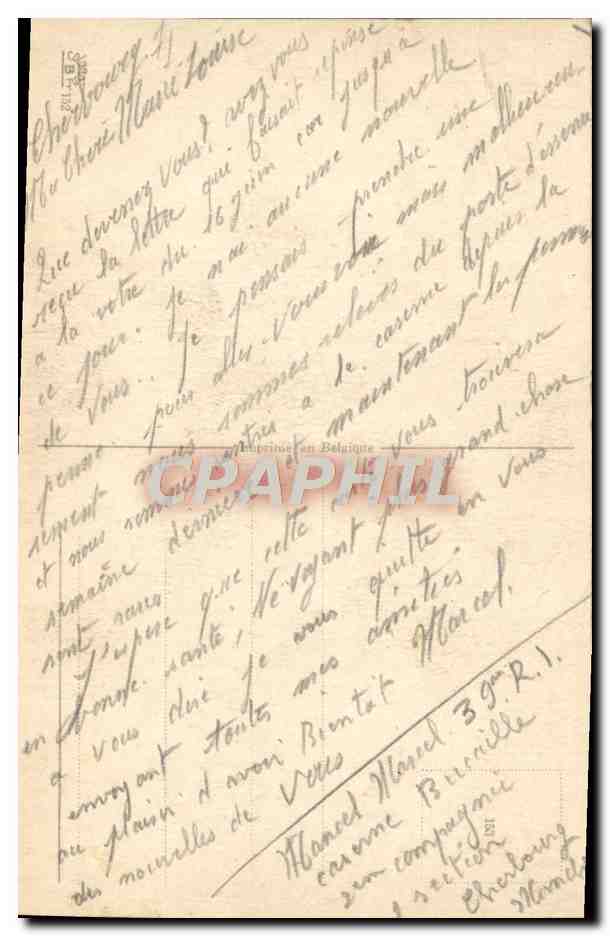 Cherbourg
Ma Chere Marie Louise
Que devenez vous? avez vous
reçu la lettre qui faisait reponse
a la votre du 16 juin car jusqu'à
ce jour je n'ai aucune nouvelle
de vous. je pensais prendre une
perme pour aller vous voir mais malheureu
sement nous sommes relevés du poste d'essence
et nous sommes rentrés a la caserne depuis la
semaine derniere et maintenant les perms
sont sans
J'espere que cette vous trouvera
en bonne santé, Ne voyant pas grand chose
a vous dire je vous quitte en vous
envoyant toutes mes amitiés
au plaisir d'avoir Bientôt Marcel.
des nouvelles de vous
Mancel Marcel 39eme R.I.
caserne Bucaille
2em compagnie
section
Cherbourg
Manche
Imprimé en Belgique
CPAPHIL
B
132
131